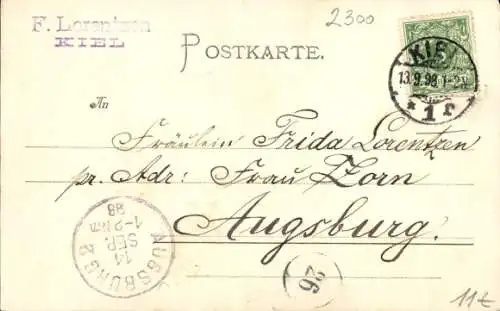 2300
F. Lorentzen
KIEL
POSTKARTE.
5
KIEL
13.9.98.1-2N.
* 1 r *
An
Fräulein Frida Lorentzen
pr. Adr: Frau Zorn
Augsburg.
AUGSBURG 2
14
SEP.
1-2 Nm
98
26
11€